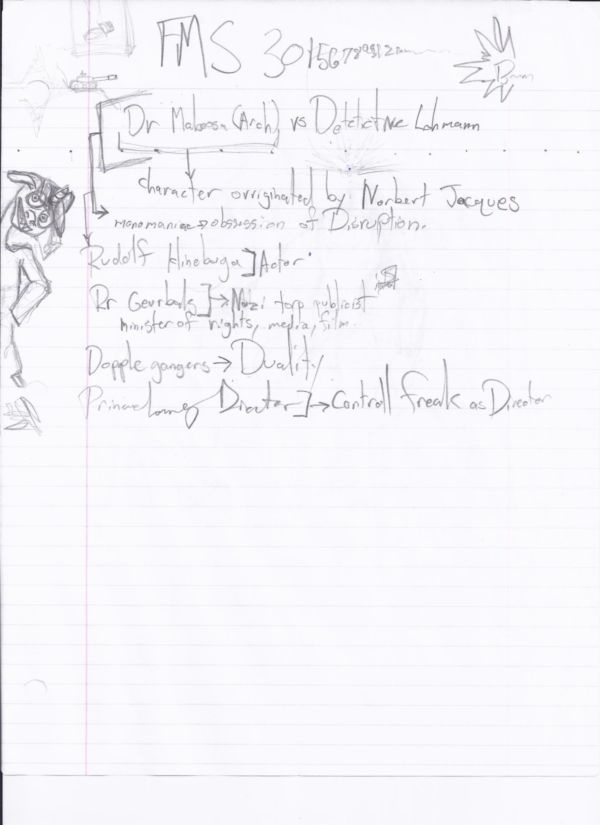 FMS 301567
Dr Mabossa (Arch) vs Detetictive Lohmann
character orriginated by Norbert Jacques
monomaniac → obsession of Disruption.
Rudolf ] Actor
Dr ] → Nazi top publicist
minister of rights, media, film.
Dopple gangers → Duality
Director ] → Controll freak as Director